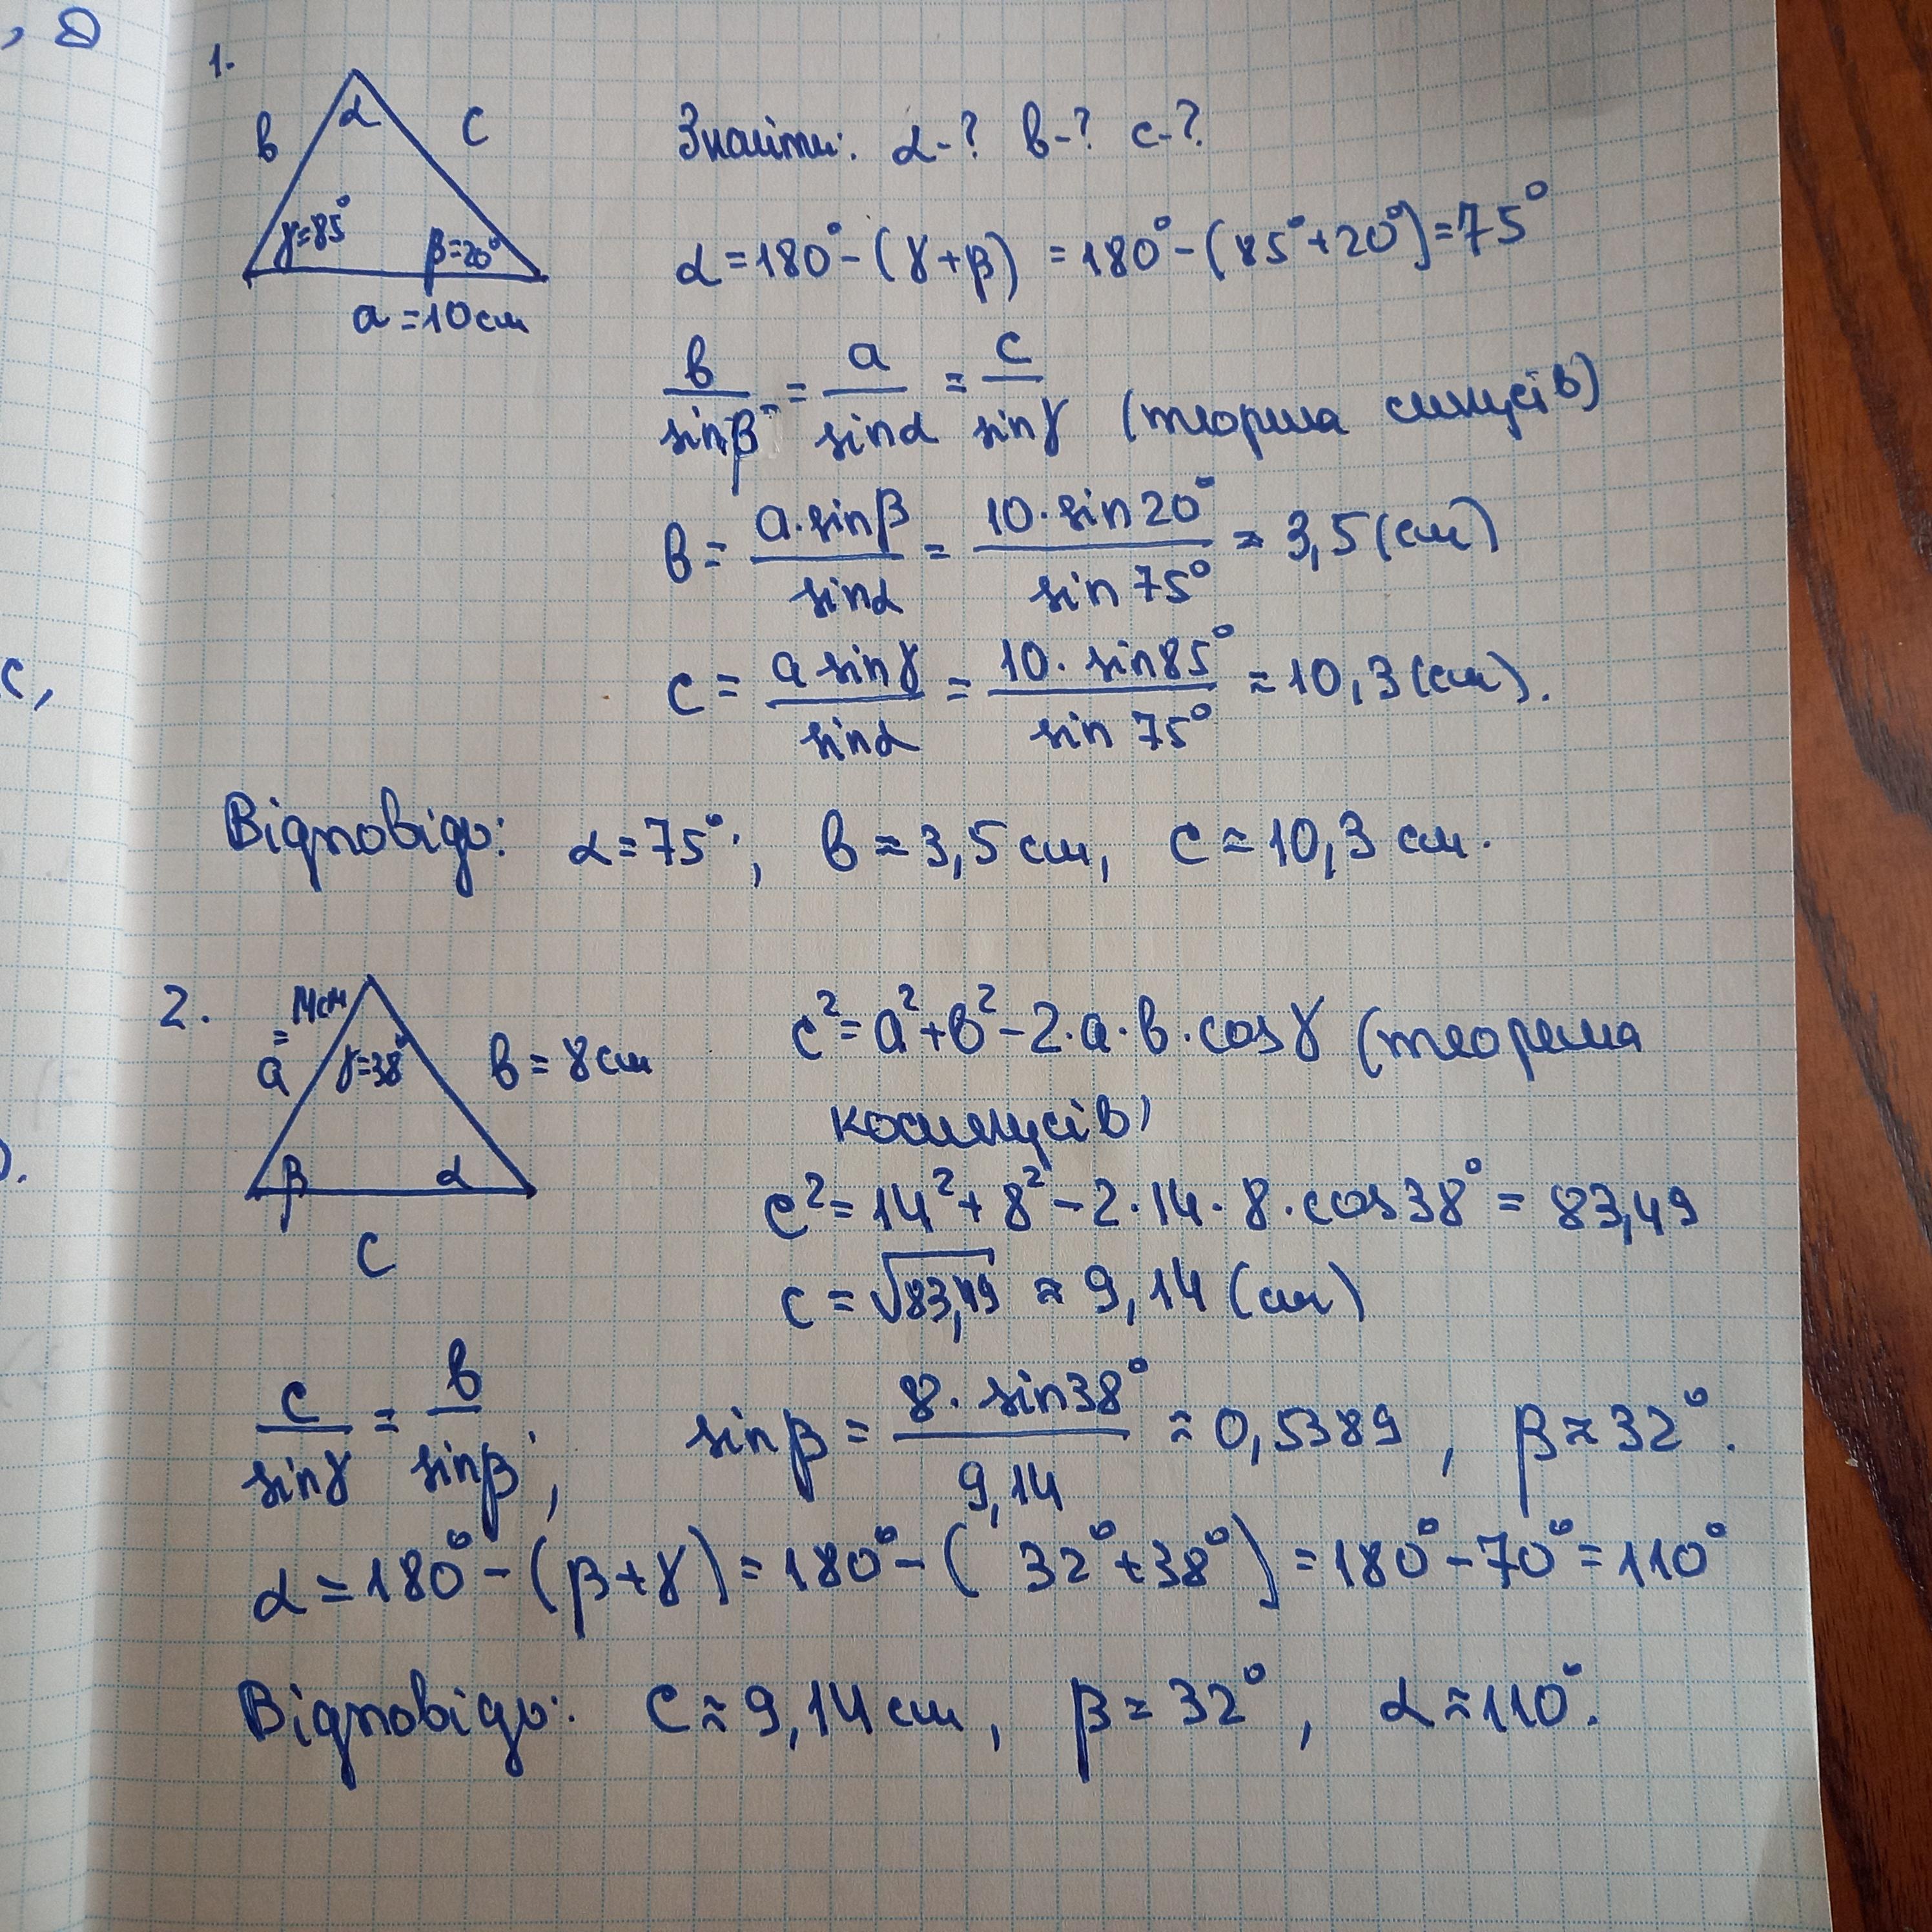 , д
1.
α
в
c
γ=85°
β=20°
a=10см
Знайти: α-? в-? c-?
α=180°-(γ+β)=180°-(85°+20°)=75°
в/sinβ = a/sinα = c/sinγ (теорема синусів)
в = a·sinβ/sinα = 10·sin20°/sin75° ≈ 3,5(см)
c = a sinγ/sinα = 10·sin85°/sin75° ≈ 10,3(см).
c,
Відповідь: α=75°; в≈3,5см, c≈10,3 см.
2.
a=14см
γ=38°
в=8см
β
α
c
c²=a²+в²-2·a·в·cosγ (теорема
косинусів)
c²=14²+8²-2·14·8·cos38°=83,49
c=√83,49≈9,14(см)
c/sinγ = в/sinβ; sinβ = 8·sin38°/9,14 ≈ 0,5389, β≈32°.
α=180°-(β+γ)=180°-(32°+38°)=180°-70°=110°
Відповідь: c≈9,14см, β≈32°, α≈110°.